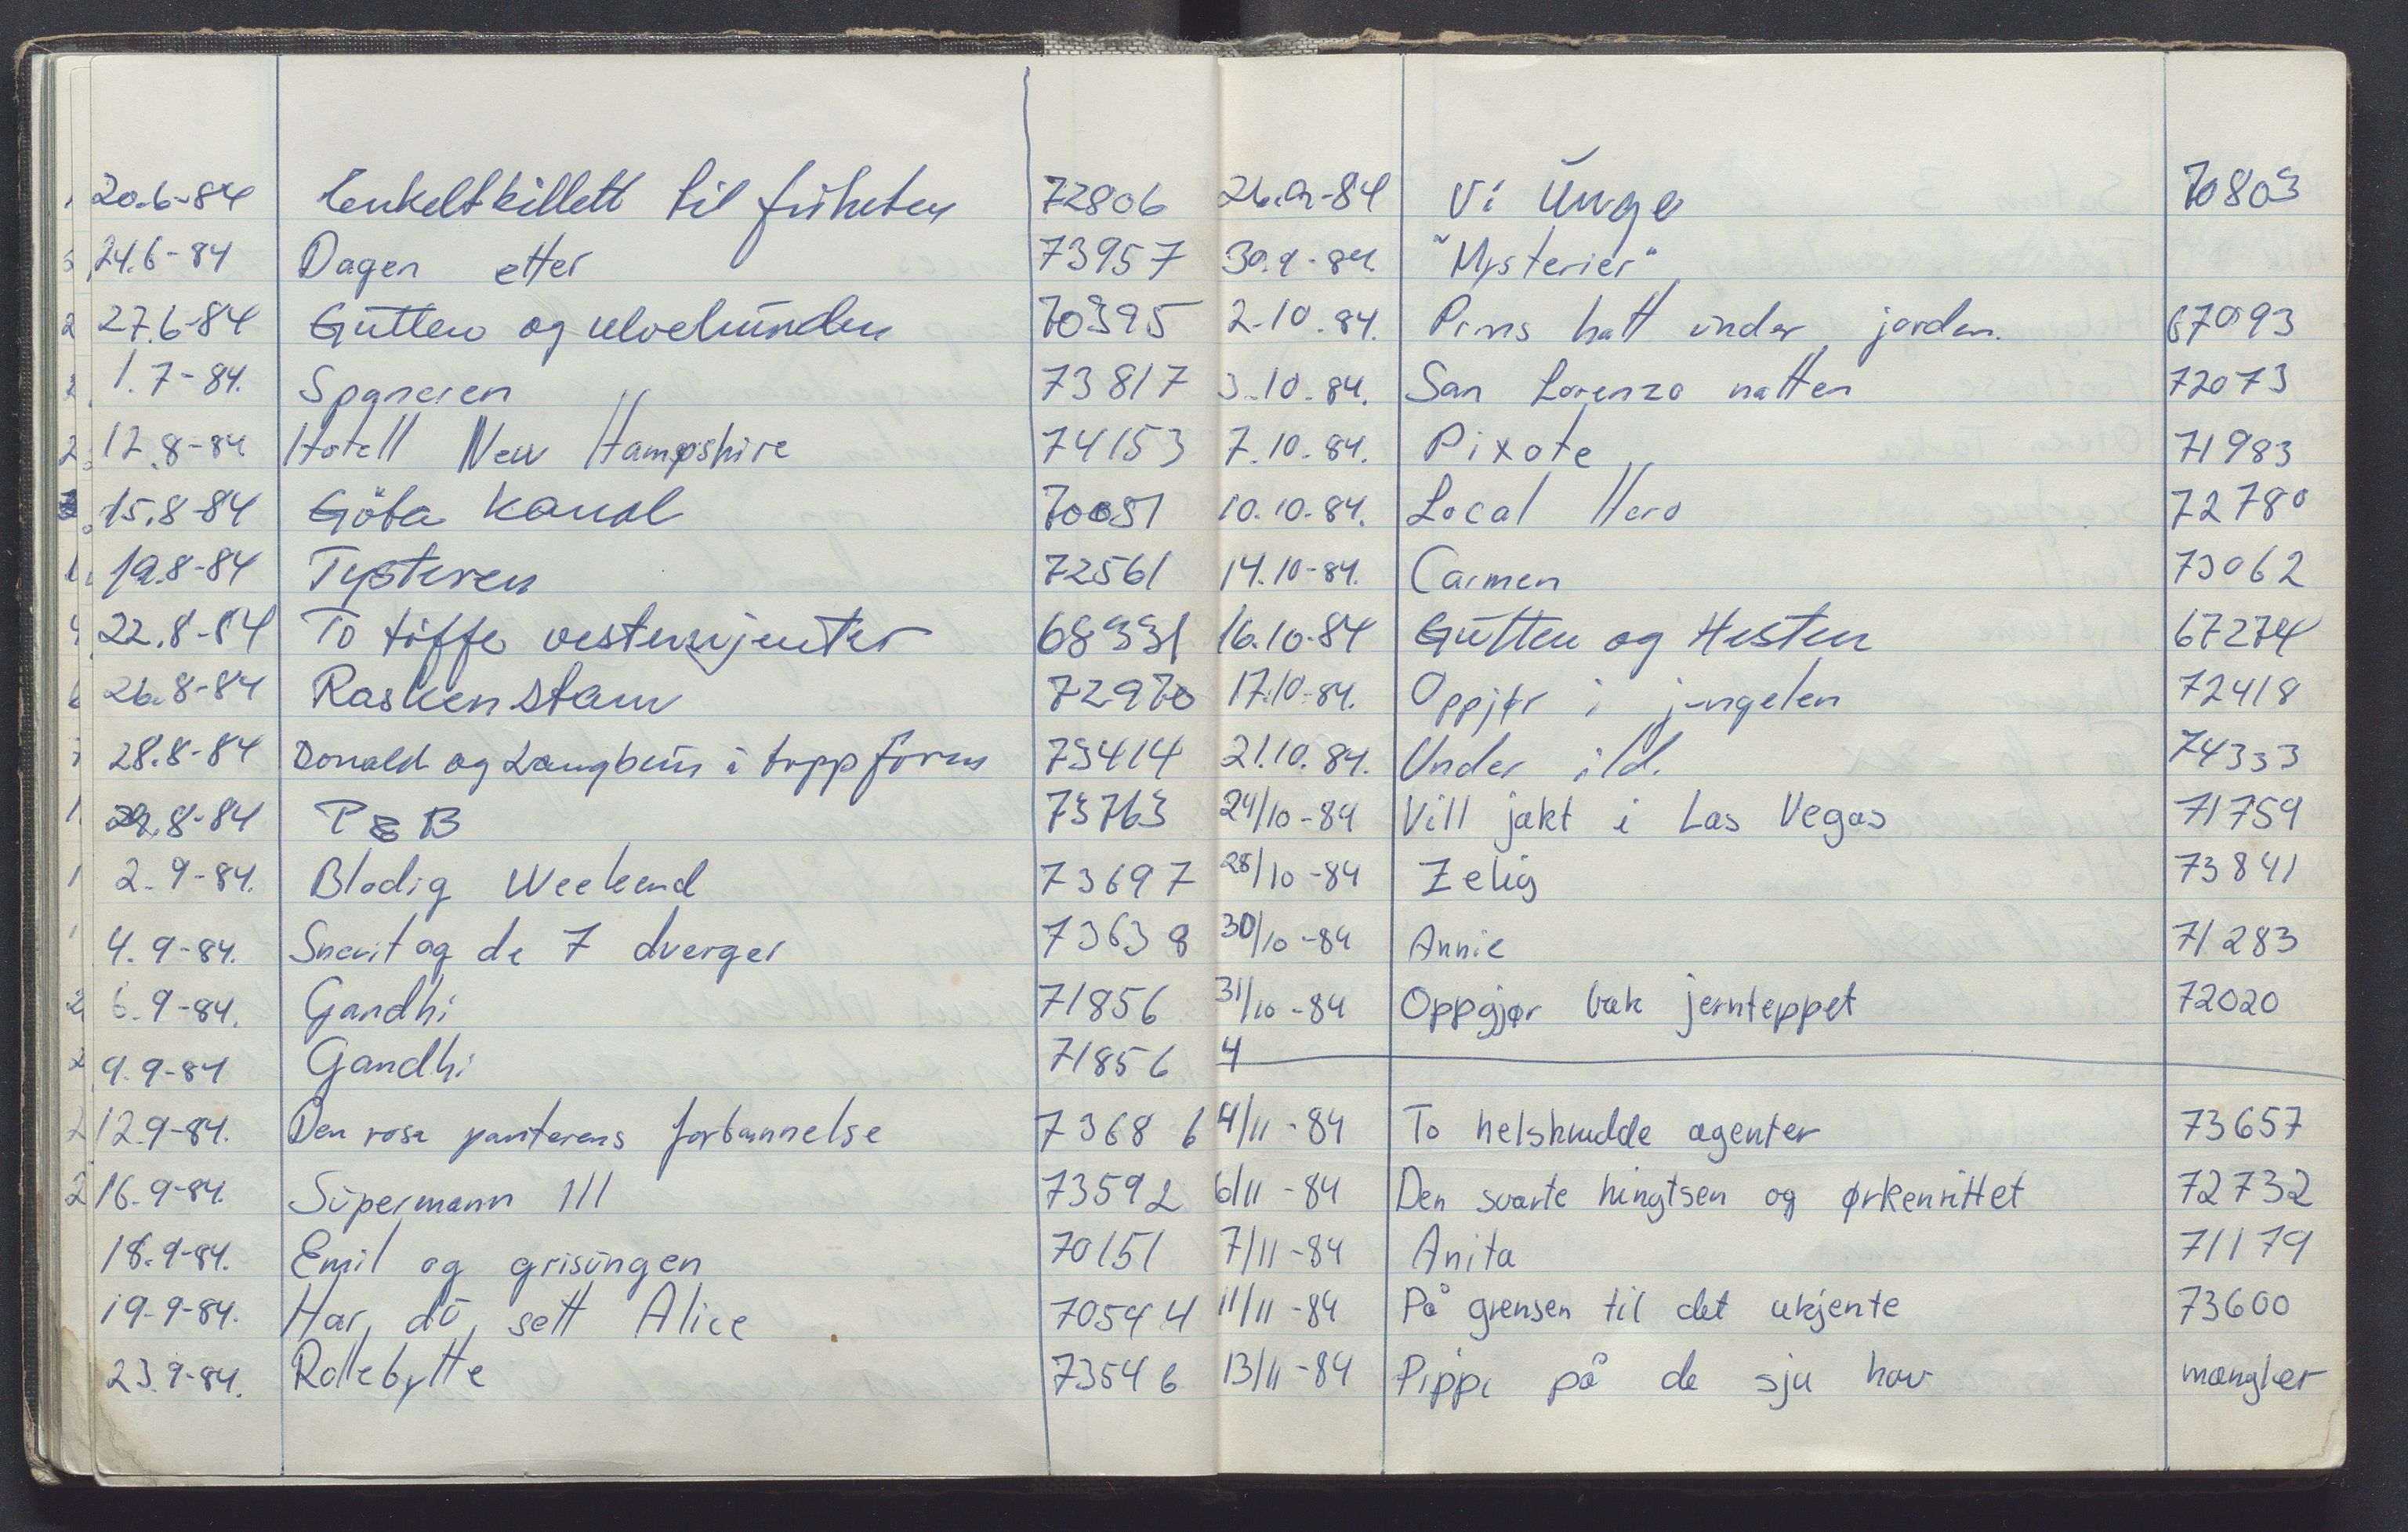 20.6-84 Enkeltbillett til friheten 72806
24.6-84 Dagen etter 73957
27.6-84 Gutten og ulvehunden 70395
1.7-84. Spaneren 73817
12.8-84 Hotell New Hampshire 74153
15.8-84 Göta Kanal 70051
19.8-84 Tysteren 72561
22.8-84 To tøffe vestenjenter 68331
26.8-84 Raskenstam 72970
28.8-84 Donald og Langbein i toppform 73414
29.8-84 P & B 73763
2.9-84. Blodig Weekend 73697
4.9-84. Snevit og de 7 dverger 73638
6.9-84. Gandhi 71856
9.9-84 Gandhi 71856
12.9-84. Den rosa panterens forbannelse 73686
16.9-84. Supermann III 73592
18.9-84. Emil og grisungen 70151
19.9-84. Har du sett Alice 70544
23.9-84. Rollebytte 73546
26.9-84 Vi Unge 70803
30.9-84. "Mysterier"
2.10.84. Prins hatt under jorden. 67093
3.10.84. San Lorenzo natten 72073
7.10.84. Pixote 71983
10.10.84. Local Hero 72780
14.10-84. Carmen 73062
16.10-84 Gutten og Hesten 67274
17.10-84. Oppjør i jungelen 72418
21.10.84. Under ild. 74333
24/10-84 Vill jakt i Las Vegas 71759
28/10-84 Zelig 73841
30/10-84 Annie 71283
31/10-84 Oppgjør bak jernteppet 72020
4
4/11-84 To helskrudde agenter 73657
6/11-84 Den svarte hingtsen og ørkenrittet 72732
7/11-84 Anita 71179
11/11-84 På grensen til det ukjente 73600
13/11-84 Pippi på de sju hav mangler